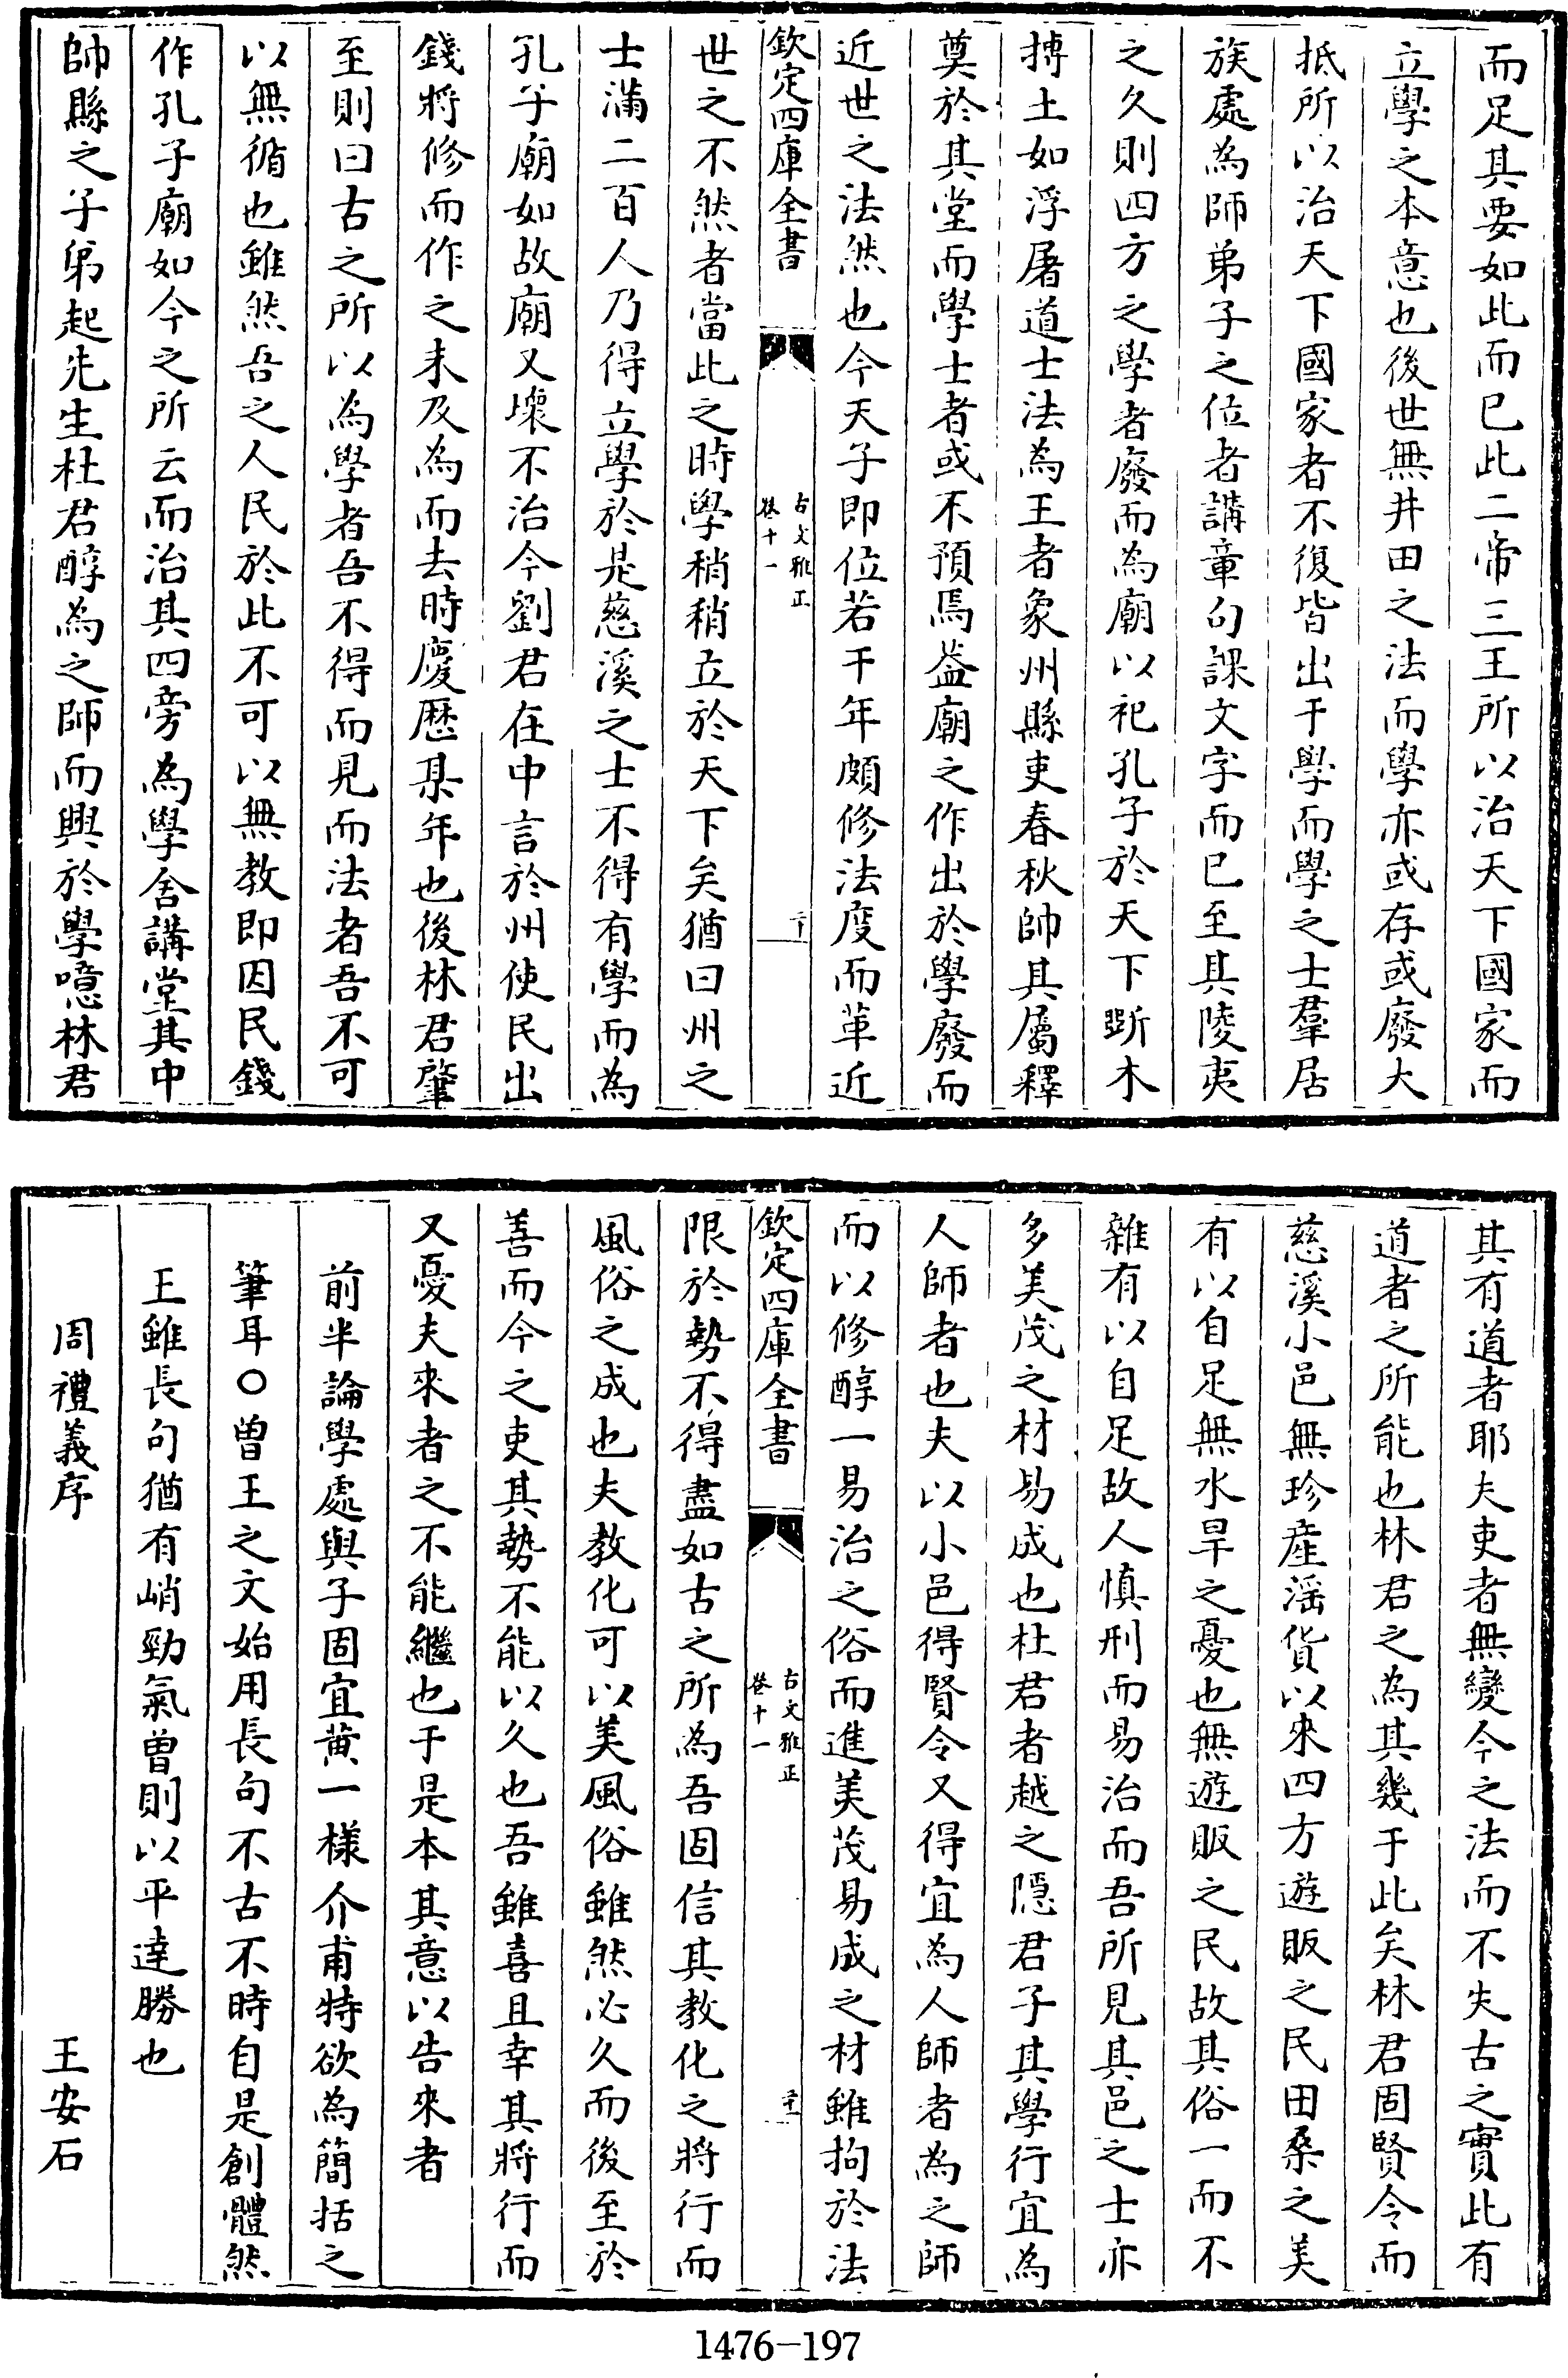 而足其要如此而已此二帝三王所以治天下國家而
立學之本意也後世無井田之法而學亦或存或廢大
抵所以治天下國家者不復皆出于學而學之士羣居
族處為師弟子之位者講章句課文字而已至其陵夷
之久則四方之學者廢而為廟以祀孔子於天下斲木
摶土如浮屠道士法為王者象州縣吏春秋帥其屬釋
奠於其堂而學士者或不預焉葢廟之作出於學廢而
近世之法然也今天子即位若干年頗修法度而革近
欽定四庫全書
古文雅正
卷十一
二十
世之不然者當此之時學稍稍立於天下矣猶曰州之
士滿二百人乃得立學於是慈溪之士不得有學而為
孔子廟如故廟又壞不治今劉君在中言於州使民出
錢將修而作之未及為而去時慶歴某年也後林君肇
至則曰古之所以為學者吾不得而見而法者吾不可
以無循也雖然吾之人民於此不可以無教即因民錢
作孔子廟如今之所云而治其四旁為學舍講堂其中
帥縣之子弟起先生杜君醇為之師而興於學噫林君
其有道者耶夫吏者無變今之法而不失古之實此有
道者之所能也林君之為其幾于此矣林君固賢令而
慈溪小邑無珍產淫貨以來四方遊販之民田桑之美
有以自足無水旱之憂也無遊販之民故其俗一而不
雜有以自足故人慎刑而易治而吾所見其邑之士亦
多美茂之材易成也杜君者越之隱君子其學行宜為
人師者也夫以小邑得賢令又得宜為人師者為之師
而以修醇一易治之俗而進美茂易成之材雖拘於法
欽定四庫全書
古文雅正
卷十一
二十一
限於勢不得盡如古之所為吾固信其教化之將行而
風俗之成也夫教化可以美風俗雖然必久而後至於
善而今之吏其勢不能以久也吾雖喜且幸其將行而
又憂夫來者之不能繼也于是本其意以告來者
前半論學處與子固宜黃一樣介甫特欲為簡括之
筆耳○曾王之文始用長句不古不時自是創體然
王雖長句猶有峭勁氣曾則以平達勝也
周禮義序 王安石
1476-197